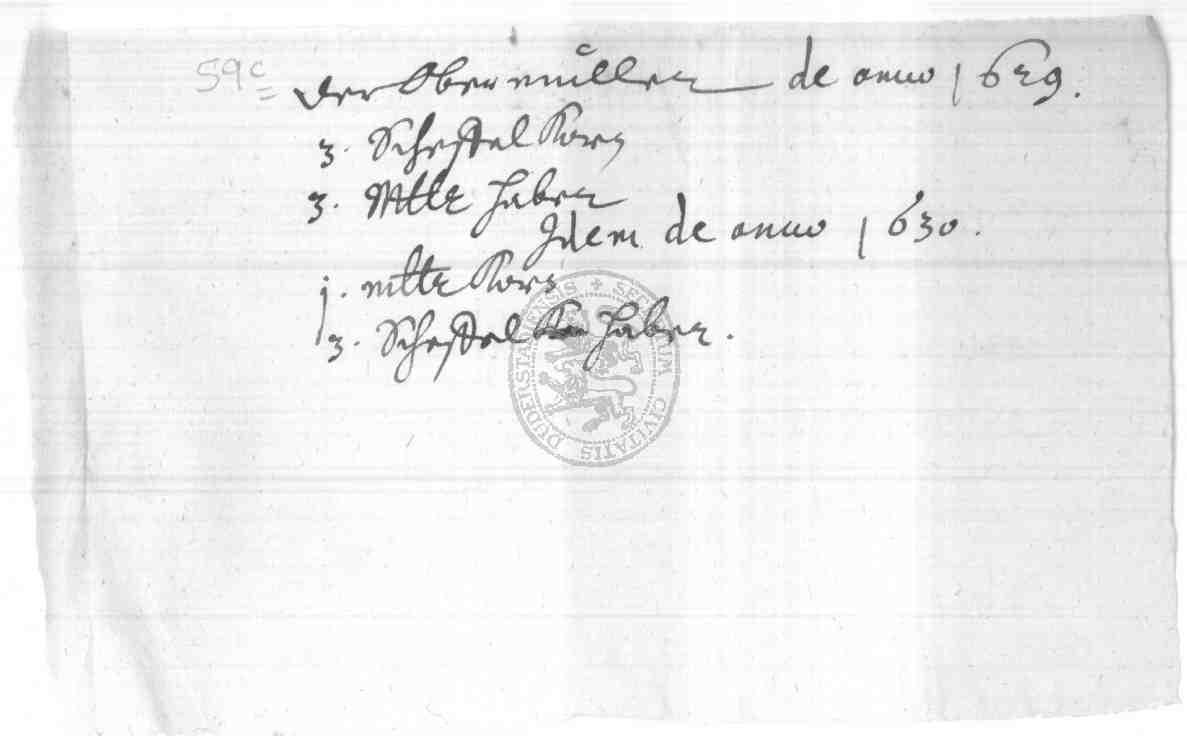 59c
der Obermüller de anno 1629.
3. Scheffel Korn
3. Mltr haber
Idem de anno 1630.
j. mltr Korn
3. Scheffel haber.
SIGILLUM CIVITATIS DUDERSTADIENSIS